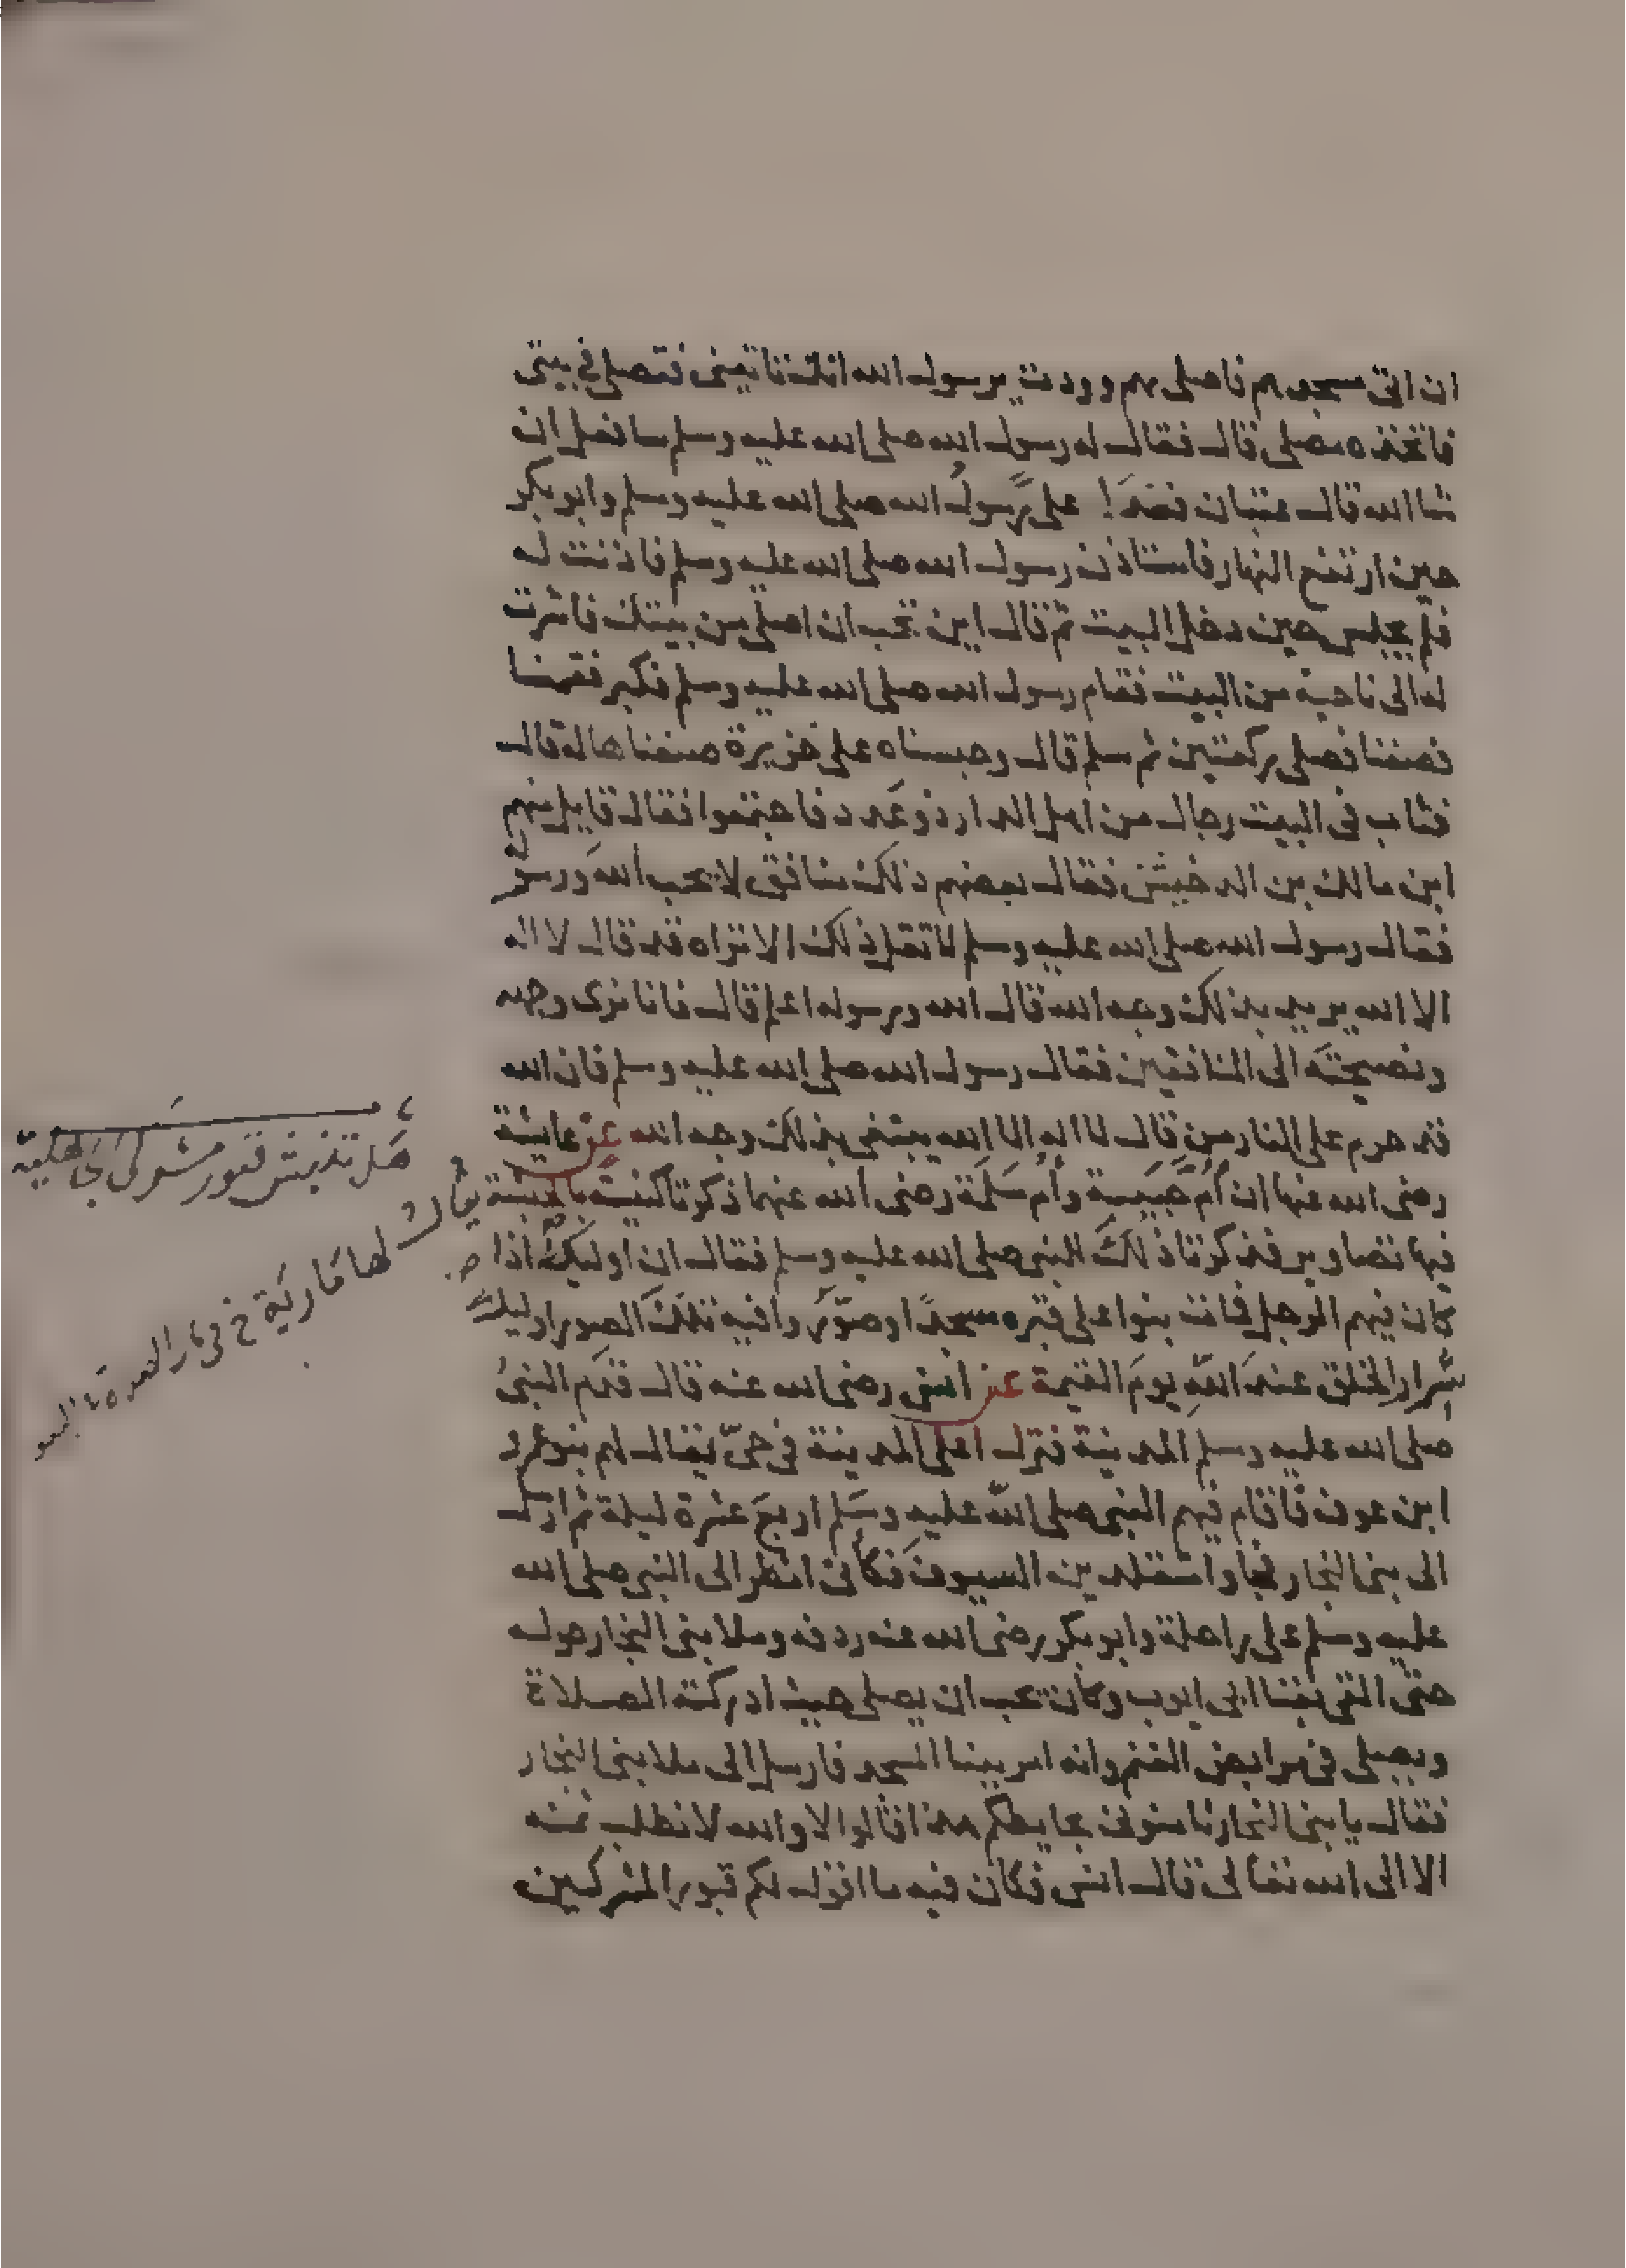 ان اتى مسجدهم فاصلى بهم وودت يرسول الله انك تاتينى فتصلى فى بيتى
فاتخذه مصلى قال فقال له رسول الله صلى الله عليه وسلم سافعل ان
شا الله قال عتبان فغدا على رسول الله صلى الله عليه وسلم وابو بكر
حين ارتفع النهار فاستاذن رسول الله صلى الله عليه وسلم فاذنت له
فلم يجلس حين دخل البيت ثم قال اين تحب ان اصلى من بيتك فاشرت
له الى ناحية من البيت فقام رسول الله صلى الله عليه وسلم فكبر فقمنا
فصففنا فصلى ركعتين ثم سلم قال وحبسناه على خزيرة صنعناها له قال
فثاب فى البيت رجال من اهل الدار ذو عدد فاجتمعوا فقال قايل منهم
اين مالك بن الدخيشن فقال بعضهم ذلك منافق لا يحب الله ورسوله
فقال رسول الله صلى الله عليه وسلم لا تقل ذلك الا تراه قد قال لا اله
الا الله يريد بذلك وجه الله قال الله ورسوله اعلم قال فانا نرى وجهه
ونصيحته الى المنافقين فقال رسول الله صلى الله عليه وسلم فان الله
قد حرم على النار من قال لا اله الا الله يبتغى بذلك وجه الله عن عايشة
رضى الله عنها ان أم حبيبة وأم سلمة رضى الله عنهما ذكرتا كنيسة بالحبشة
فيها تصاوير فذكرتا ذلك للنبى صلى الله عليه وسلم فقال ان اوليك اذا
كان فيهم الرجل فمات بنوا على قبره مسجدا وصوروا فيه تلك الصور اوليك
شرار الخلق عند الله يوم القيمة عن انس رضى الله عنه قال قدم النبى
صلى الله عليه وسلم المدينة فنزل اعلى المدينة فى حى يقال لهم بنو عمرو
ابن عوف فاقام فيهم النبى صلى الله عليه وسلم اربع عشرة ليلة ثم ارسل
الى بنى النجار فجاوا متقلدين السيوف فكأنى انظر الى النبى صلى الله
عليه وسلم على راحلة وابو بكر رضى الله عنه ردفه وملا بنى النجار حوله
حتى القى بفنا ابى ايوب وكان يحب ان يصلى حيث ادركته الصلاة
ويصلى فى مرابض الغنم وانه امر ببنا المسجد فارسل الى ملا بنى النجار
فقال يا بنى النجار ثامنونى بحايطكم هذا قالوا لا والله لا نطلب ثمنه
الا الى الله تعالى قال انس فكان فيه ما اقول لكم قبور المشركين
هل تنبش قبور مشركى الجاهلية
يقال لها مارية